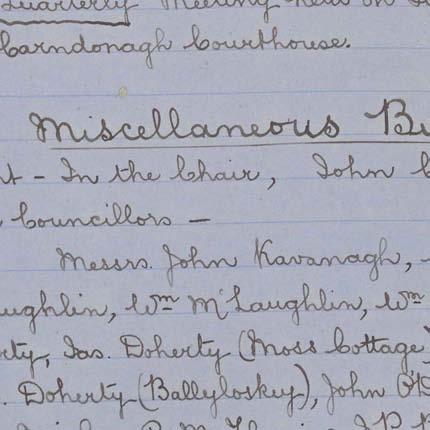 Quarterly Meeting held on
Carndonagh Courthouse.
Miscellaneous Bu
t - In the Chair, John C
Councillors -
Messrs. John Kavanagh, -
ughlin, Wm McLaughlin, Wm
rty, Jas. Doherty (Moss Cottage)
. Doherty (Ballyloskey), John O'D